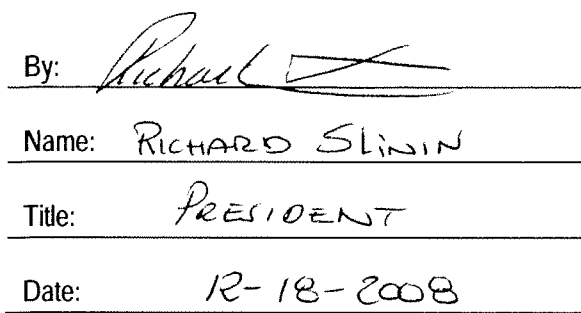 By: Richard
Name: RICHARD SLININ
Title: PRESIDENT
Date: 12-18-2008